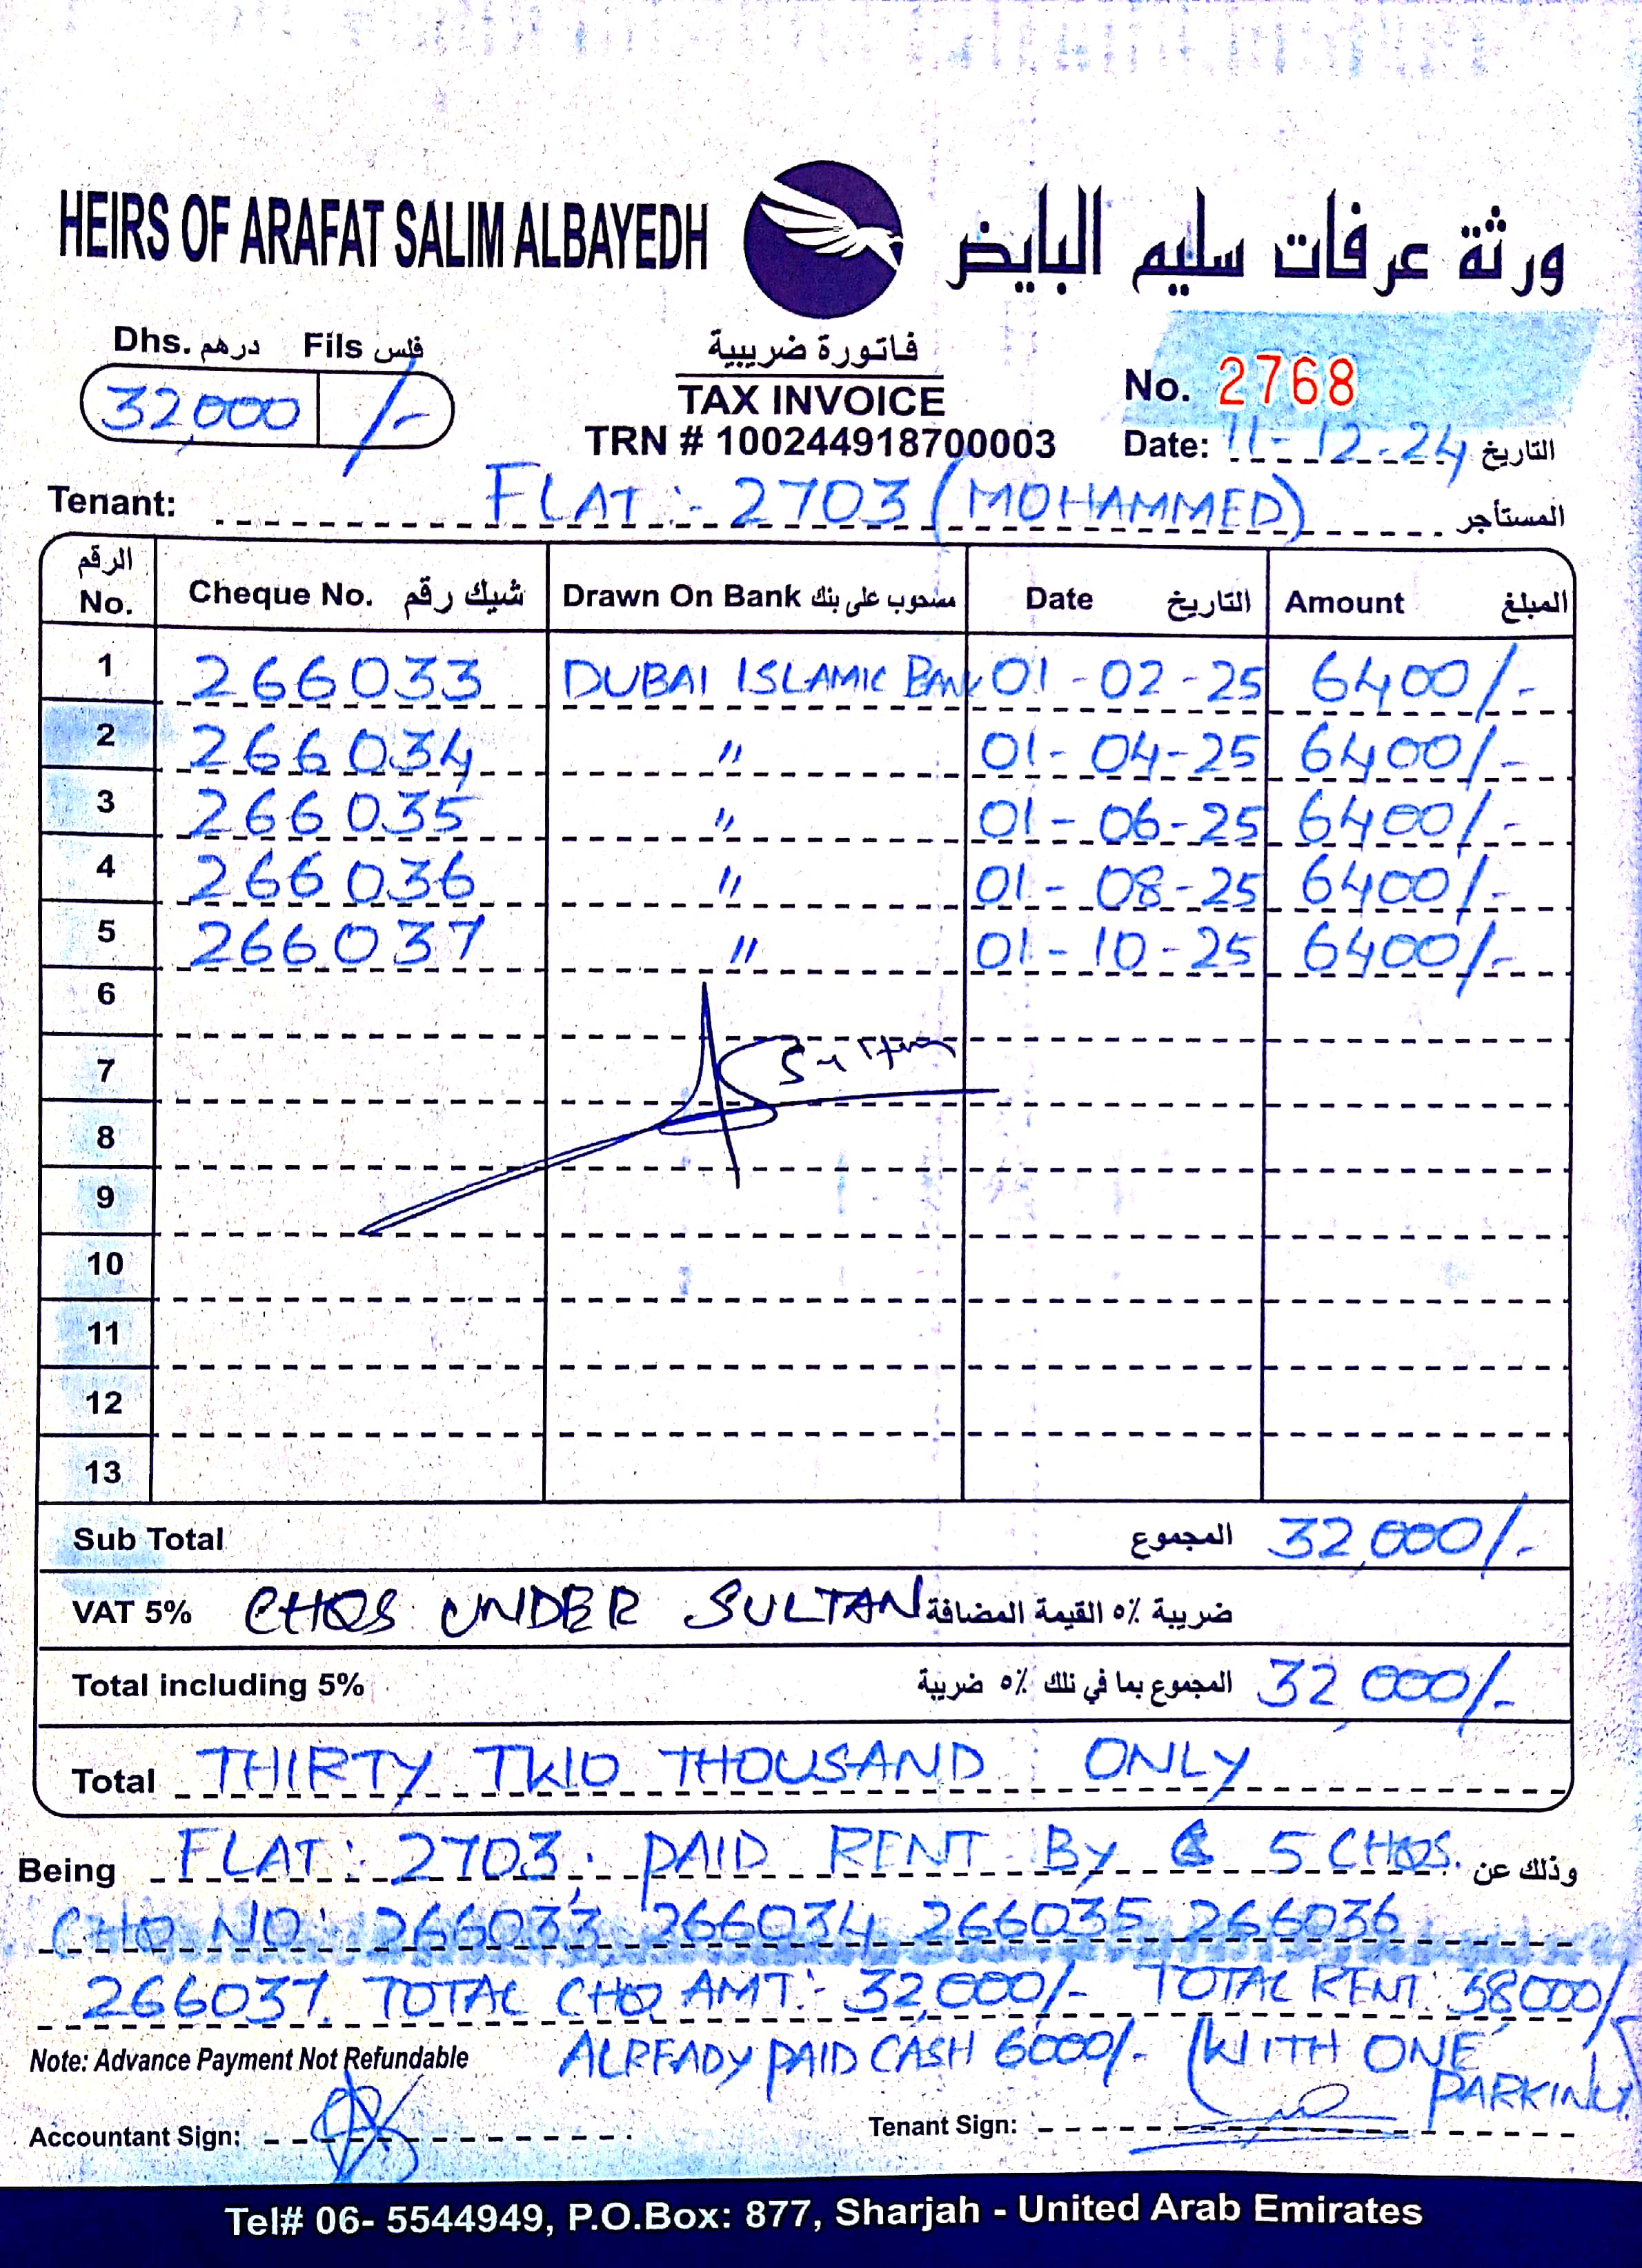 HEIRS OF ARAFAT SALIM ALBAYEDH ورثة عرفات سليم البايض
Dhs. درهم Fils فلس
32,000 /-
فاتورة ضريبية
TAX INVOICE
TRN # 100244918700003
No. 2768
Date: 11-12-24 التاريخ
Tenant: FLAT:- 2703 (MOHAMMED) المستأجر
الرقم No. Cheque No. شيك رقم Drawn On Bank مسحوب على بنك Date التاريخ Amount المبلغ
1 266033 DUBAI ISLAMIC BANK 01-02-25 6400/-
2 266034 " 01-04-25 6400/-
3 266035 " 01-06-25 6400/-
4 266036 " 01-08-25 6400/-
5 266037 " 01-10-25 6400/-
6
7
8
9
10
11
12
13
Sub Total المجموع 32,000/-
VAT 5% CHQS UNDER SULTAN ضريبة ٥٪ القيمة المضافة
Total including 5% المجموع بما في تلك ٥٪ ضريبة 32,000/-
Total THIRTY TWO THOUSAND ONLY
Being FLAT: 2703, PAID RENT By 5 CHQS. وذلك عن
CHQ NO: 266033, 266034, 266035, 266036
266037. TOTAL CHQ AMT:- 32,000/- TOTAL RENT: 38000/-
Note: Advance Payment Not Refundable ALREADY PAID CASH 6000/- (WITH ONE
PARKING)
Accountant Sign: Tenant Sign:
Tel# 06- 5544949, P.O.Box: 877, Sharjah - United Arab Emirates